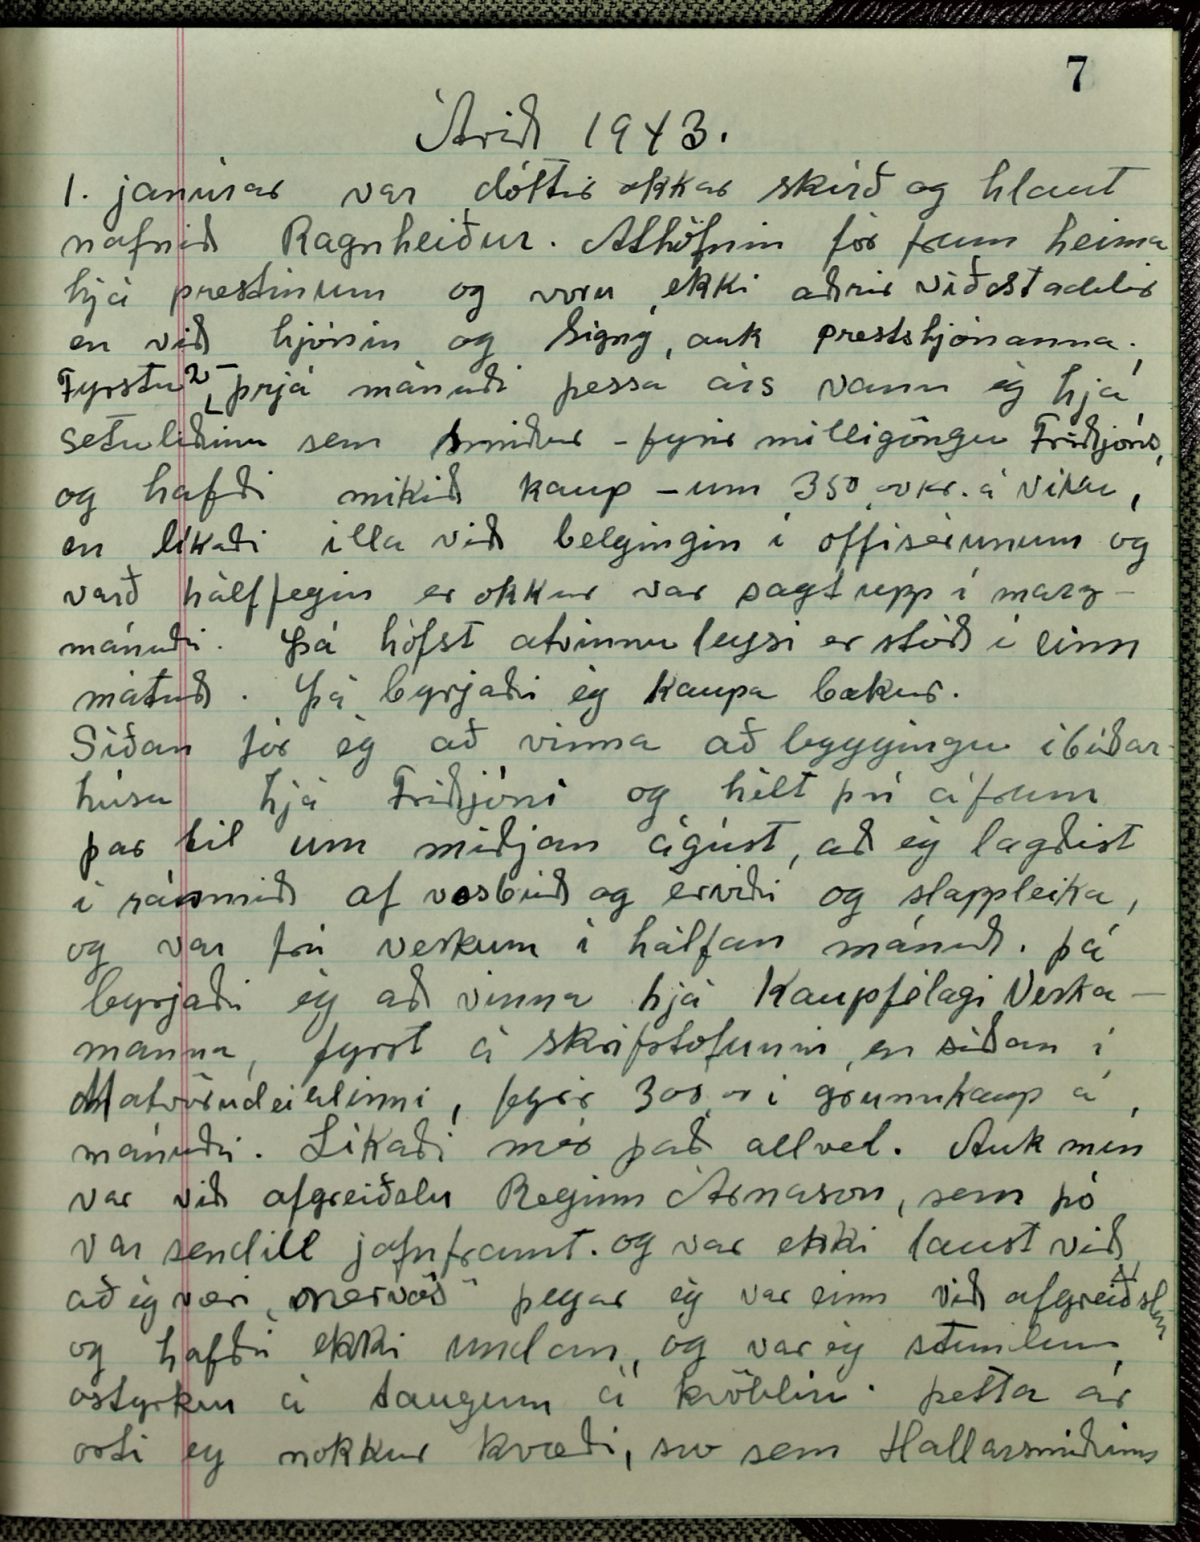 7
Árið 1943.
1. janúar var dóttir okkar skírð og hlaut
nafnið Ragnheiður. Athöfnin fór fram heima
hjá prestinum og voru ekki aðrir viðstaddir
en við hjónin og Signý, auk prestshjónanna.
Fyrstu 2-þrjá mánuði þessa árs vann ég hjá
setuliðinu sem smiður - fyrir milligöngu Friðjóns,
og hafði mikið kaup - um 350 kr. á viku,
en líkaði illa við belgingin í offisérunum og
varð hálffegin er okkur var sagt upp í marz-
mánuði. Þá hófst atvinnuleysi er stóð í einn
mátuð. Þá byrjaði ég kaupa bækur.
Síðan fór ég að vinna að byggingu íbúðar-
húsa hjá Friðjóni og hélt því áfram
þar til um miðjan ágúst, að ég lagðist
í rúmið af vosbúð og erviði og slappleika,
og var frá verkum í hálfan mánuð. Þá
byrjaði ég að vinna hjá Kaupfélagi Verka-
manna, fyrst á skrifstofunni, en síðan í
Matvörudeildinni, fyrir 300 í grunnkaup á
mánuði. Líkaði mér það allvel. Auk mín
var við afgreiðslu Reginn Árnason, sem þó
var sendill jafnframt. og var ekki laust við
að ég væri „nervös" þegar ég var einn við afgreiðslu
og hafði ekki undan, og var ég stundum
óstyrkur á taugum á kvöldin. Þetta ár
orti ég nokkur kvæði, svo sem Hallarsmiðinn